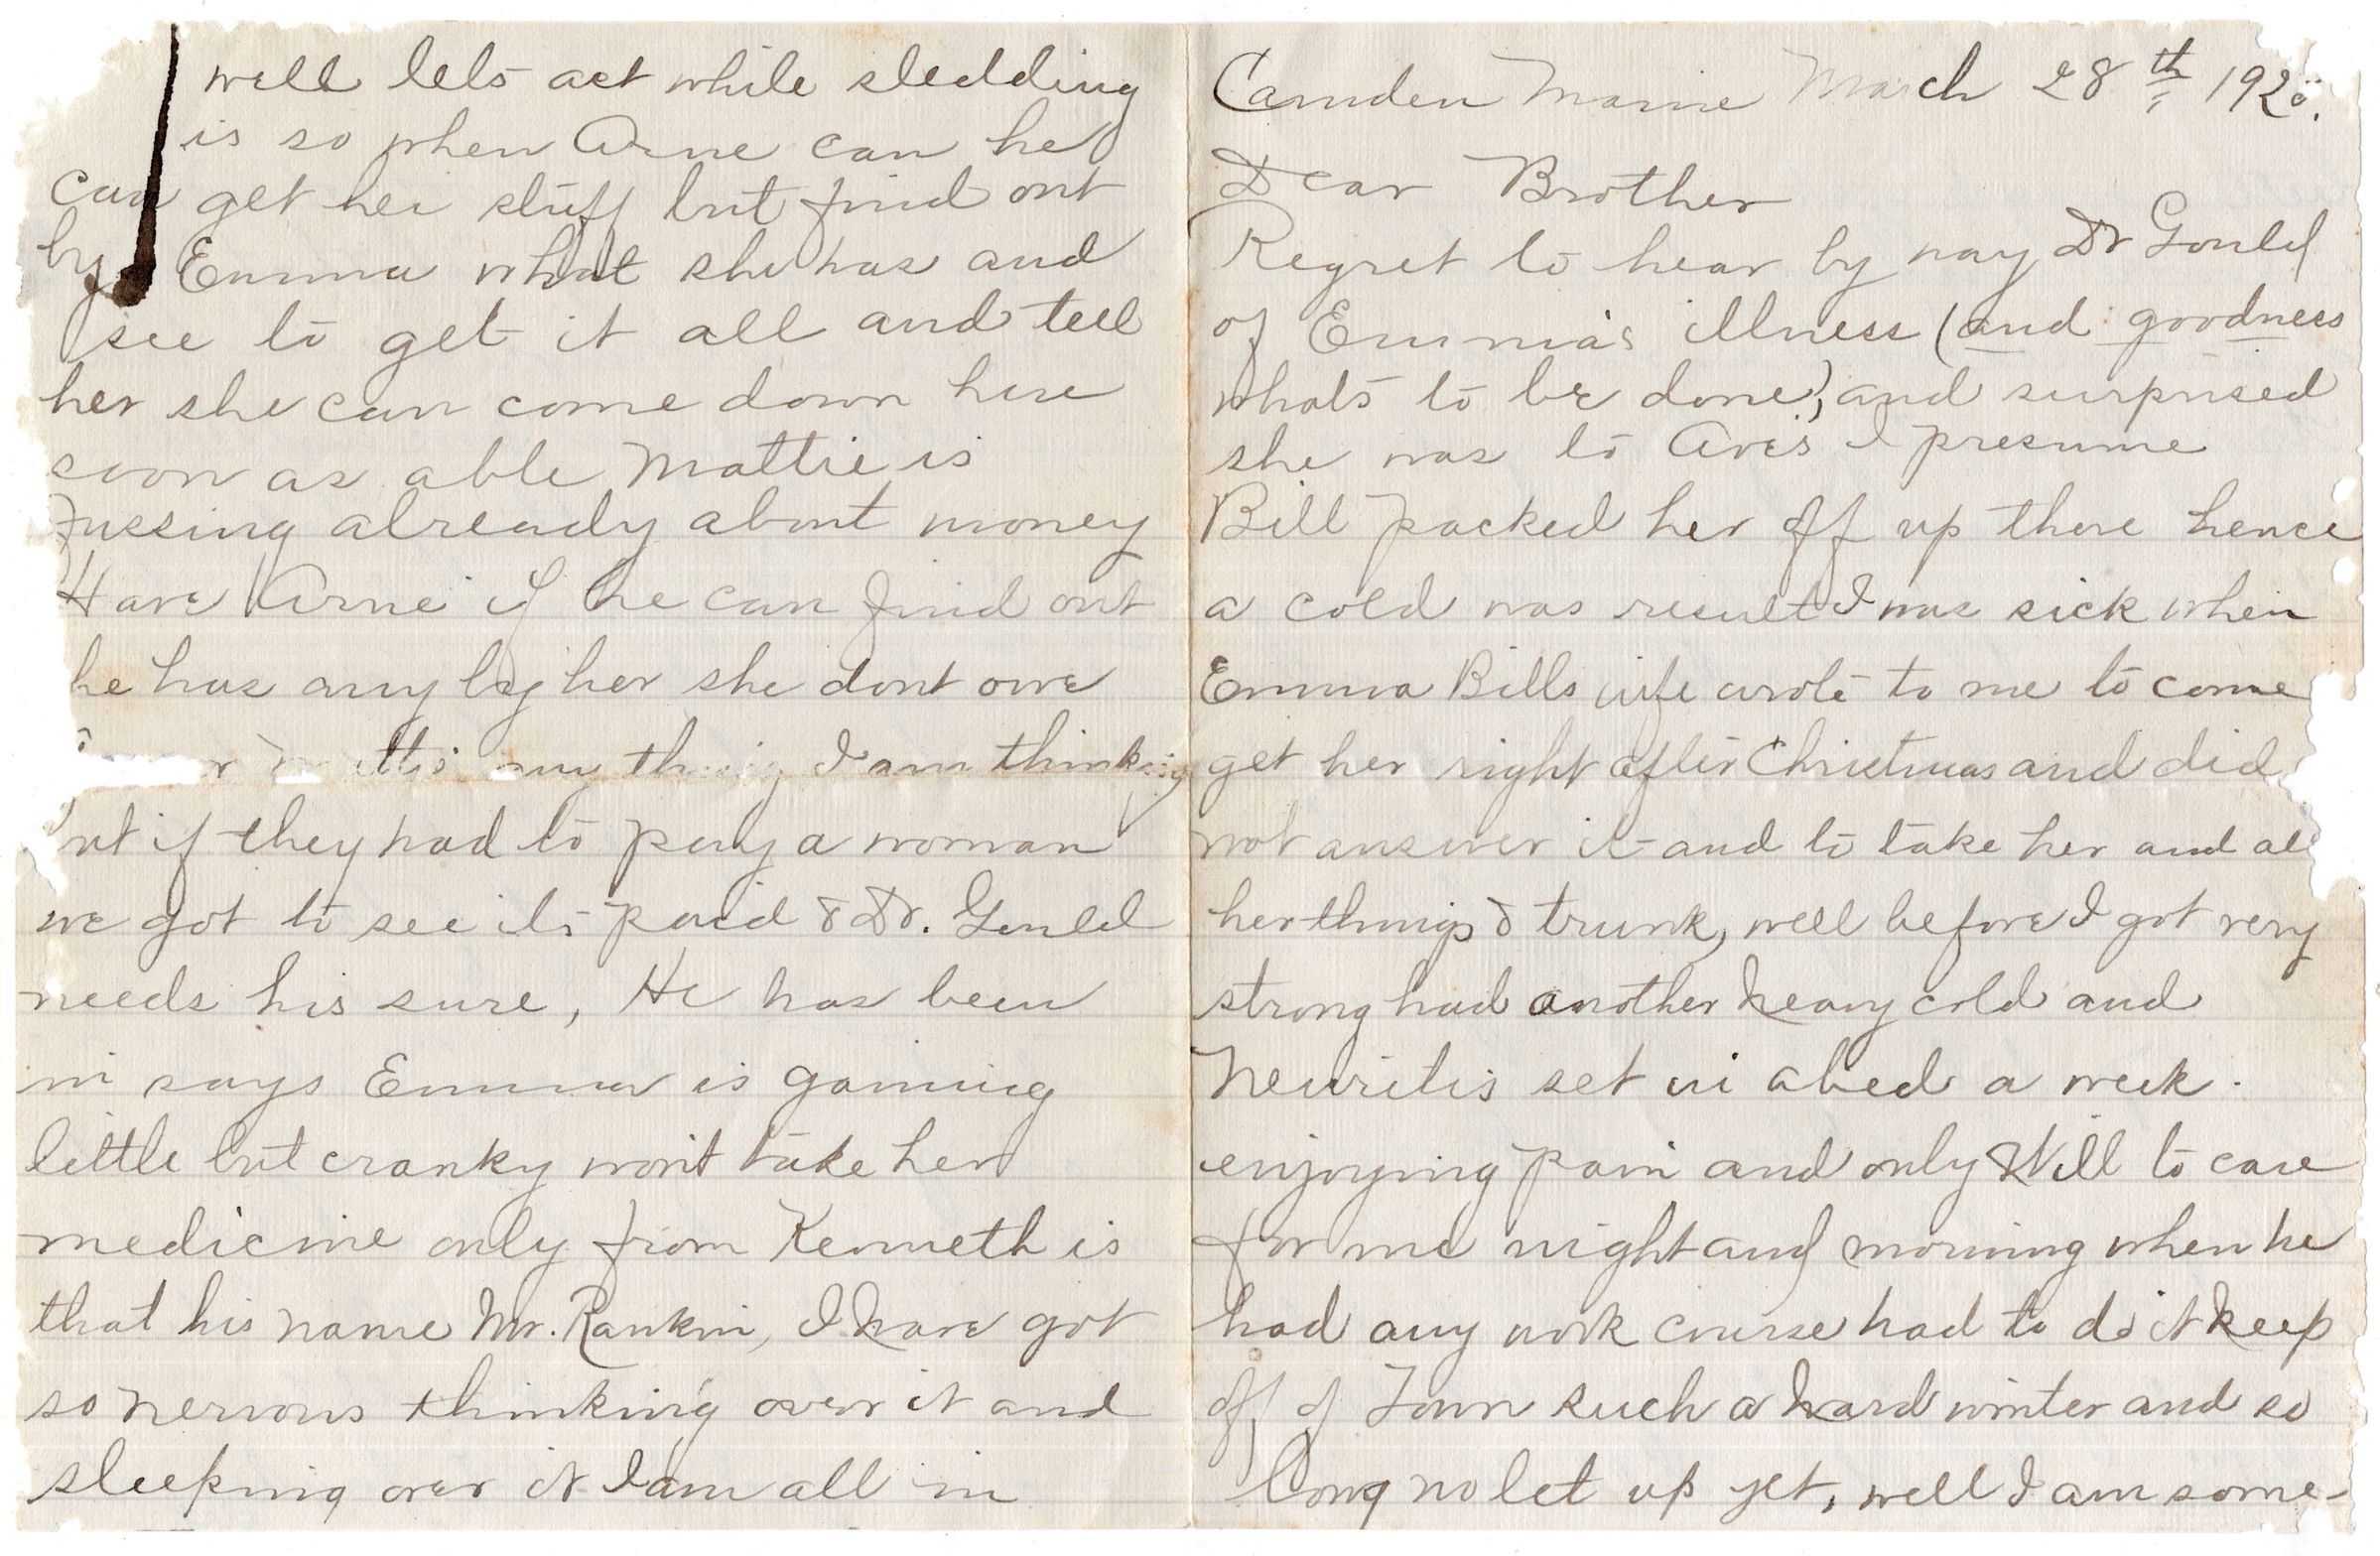 Camden Maine March 28th 192
Dear Brother
Regret to hear by way Dr Gould
of Emma's illness (and goodness
whats to be done) and surprised
she was to Avas I presume
Bill packed her off up there hence
a cold was result I was sick when
Emma Bills wife wrote to me to come
get her right after Christmas and did
not answer it and to take her and all
her things & trunk, well before I got very
strong had another heavy cold and
Neuritis set in abed a week.
enjoying pain and only Will to care
for me night and morning when he
had any work course had to do it keep
off of Town such a hard winter and so
long no let up yet, well I am some-
well lets act while sledding
is so when Arne can he
can get her stuff but find out
by Emma what she has and
see to get it all and tell
her she can come down here
soon as able Mattie is
fussing already about money
Have Arne if he can find out
he has any by her she dont owe
any thing I am thinking
but if they had to pay a woman
we got to see its paid & Dr. Gould
needs his sure, He has been
in says Emma is gaining
little but cranky wont take her
medicine only from Kenneth is
that his name Mr. Rankin, I have got
so nervous thinking over it and
sleeping over it I am all in